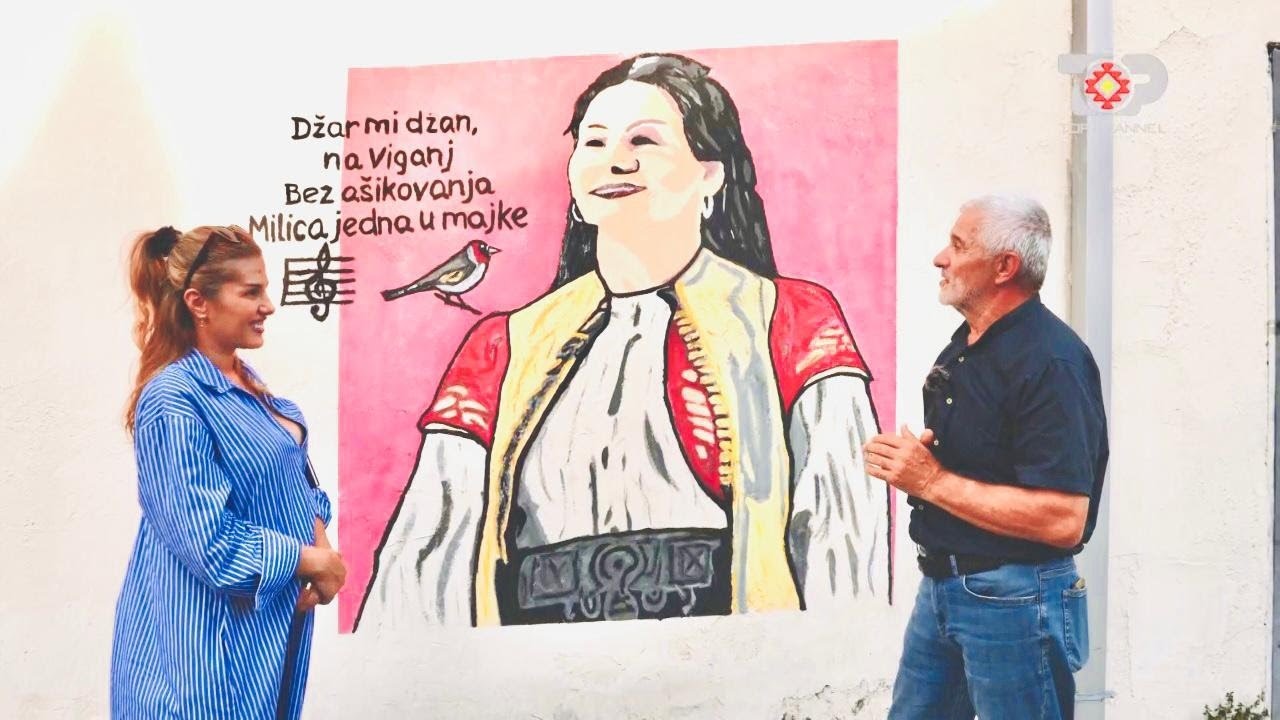 Džar mi džan,
na Viganj
Bez ašikovanja
Milica jedna u majke
TOP
TOP CHANNEL